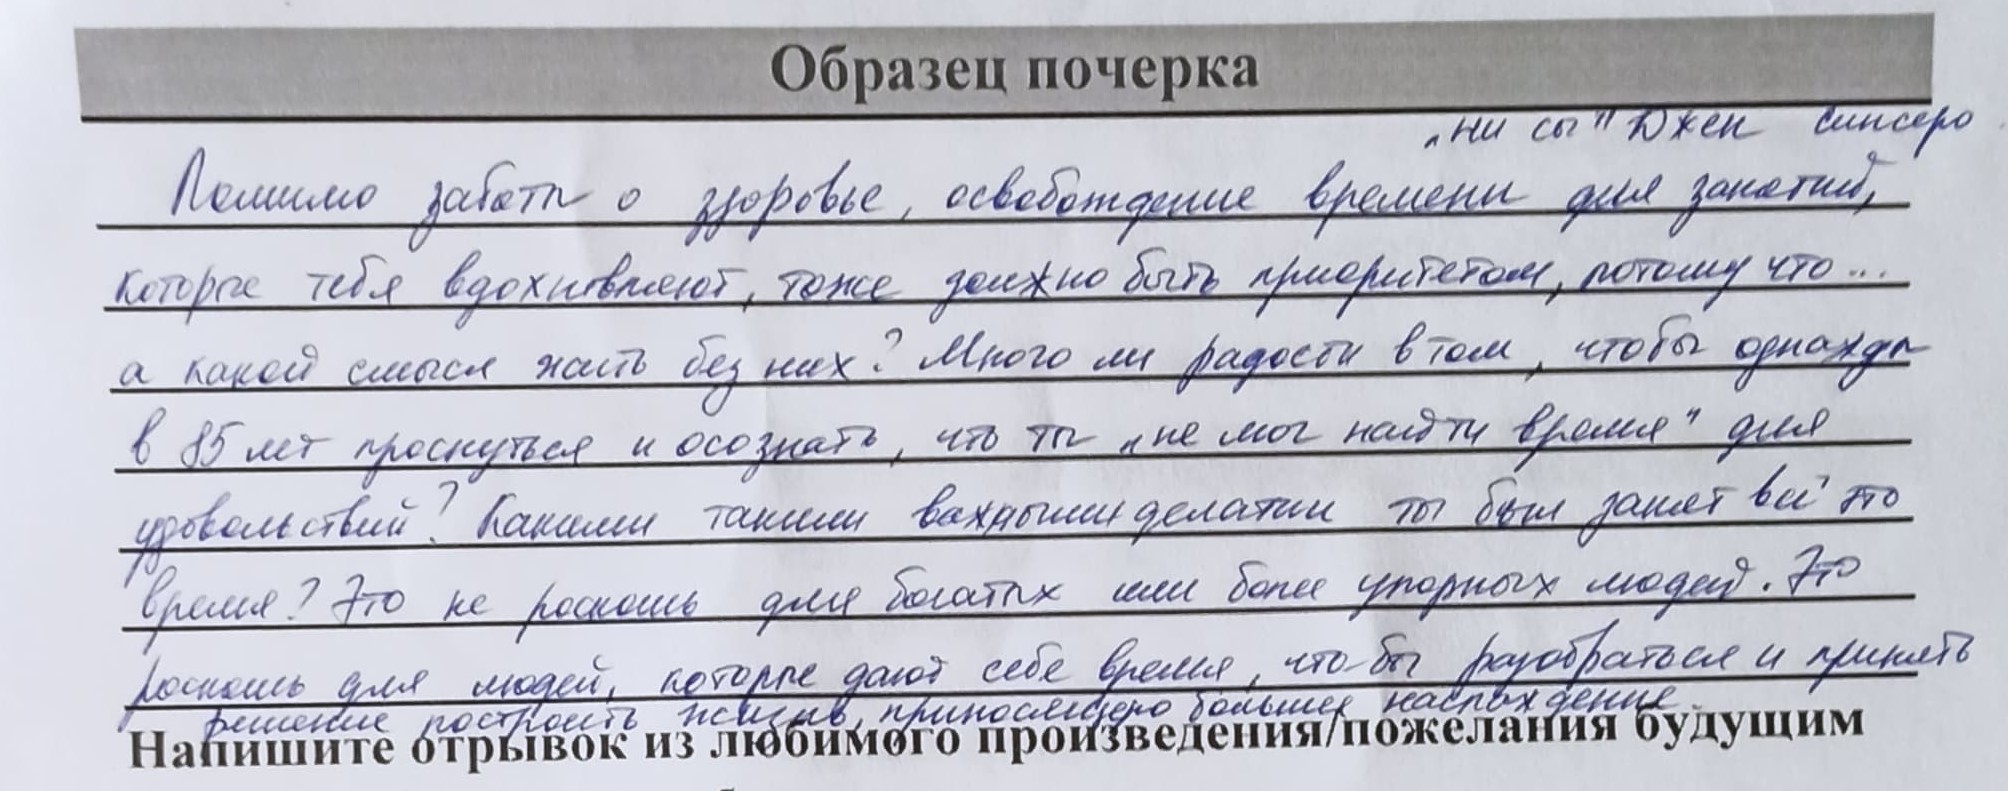 Образец почерка
„ни сы" Джен Синсеро
Помимо заботы о здоровье, освобождение времени для занятий,
которые тебя вдохновляют, тоже должно быть приоритетом, потому что...
а какой смысл жить без них? Много ли радости в том, чтобы однажды
в 85 лет проснуться и осознать, что ты „не мог найти время" для
удовольствий? Какими такими важными делами ты был занят всё это
время? Это не роскошь для богатых или более упорных людей. Это
роскошь для людей, которые дают себе время, что-бы разобраться и принять
решение построить жизнь, приносящую большее наслаждение
Напишите отрывок из любимого произведения/пожелания будущим